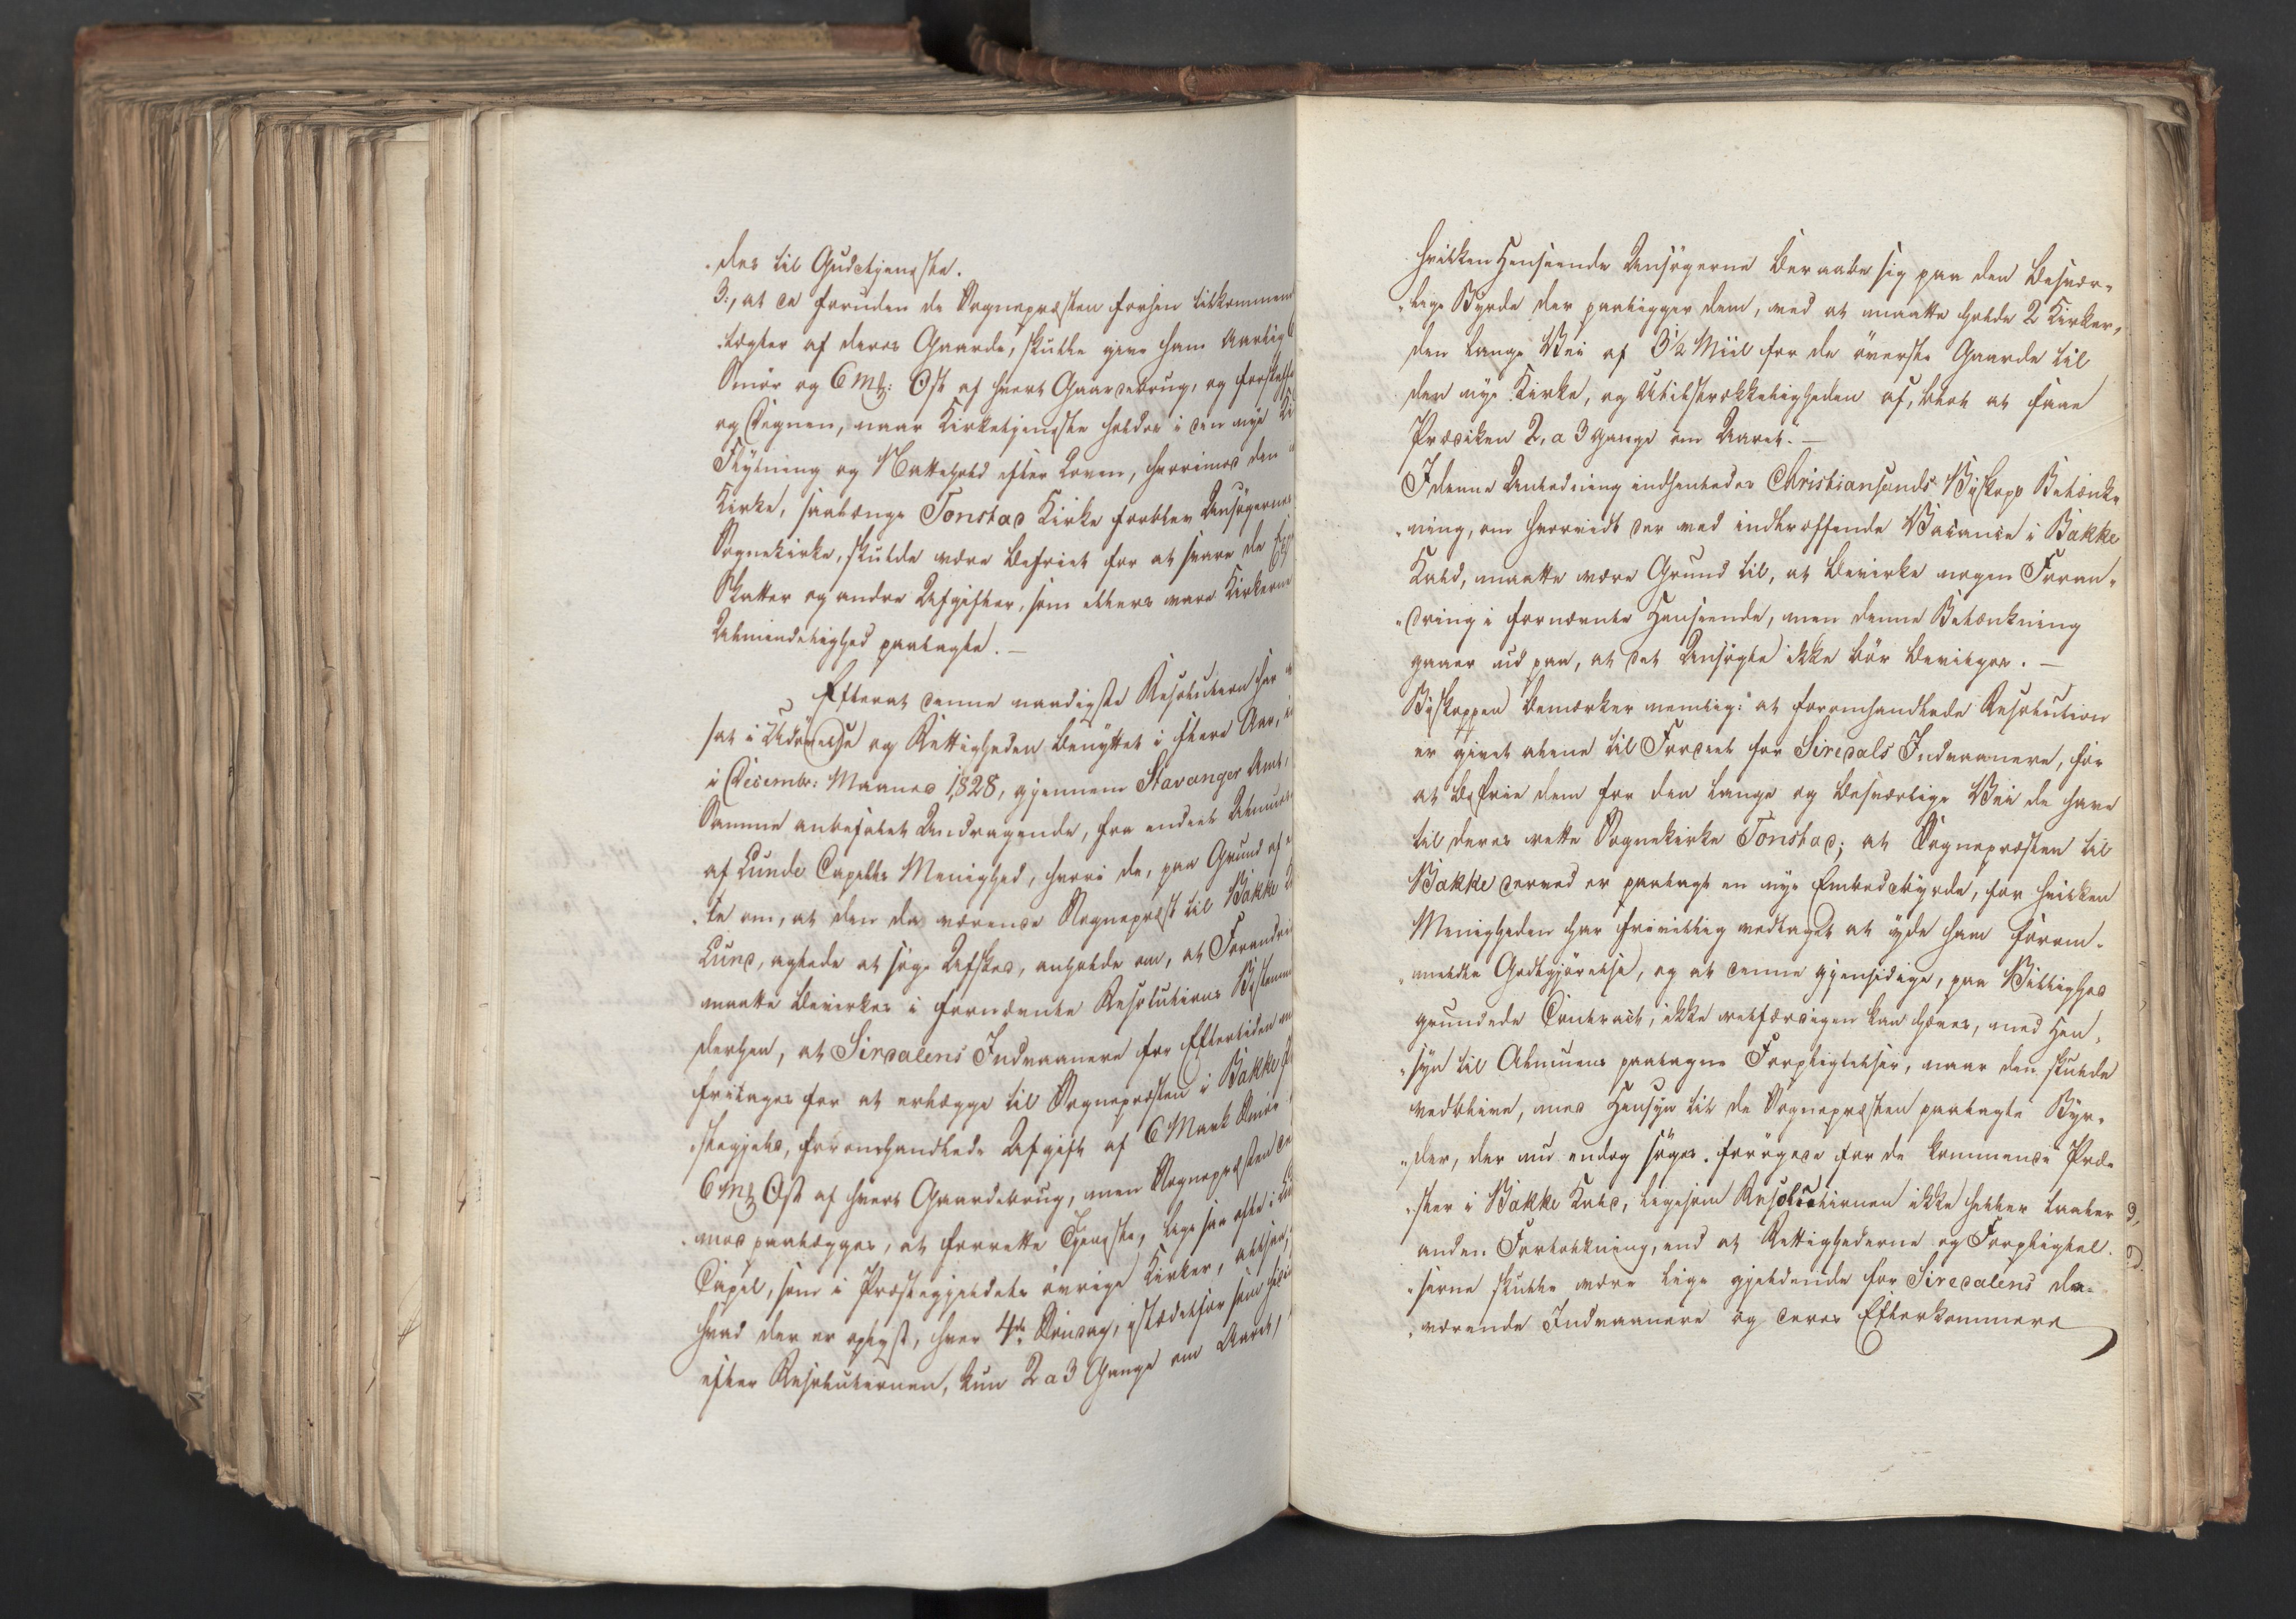 des til Gudstjeneste.
3., at de foruden de Sognepræsten forhen tilkommen
tægter af deres Gaarde, skulle give ham aarligt
Smör og 6 Mk: Ost af hvert Gaardebrug, og forskaffe
og Degnen, naar Kirketjeneste holdes i den nye Ki
Flytning og Nattehold efter Loven, hvorimod den
Kirke, saalænge Tonstad Kirke forblev Ansögernes
Sognekirke, skulde være befriet for at svare de
Skatter og andre Afgifter, som ellers vare Kirkerne
Almindelighed paalagte. —
Efterat denne naadigste Resolution har
sat i Udövelse og Rettigheden benyttet i flere Aar, i
i Decembr: Maaned 1828, gjennem Stavanger Amt,
Samme anbefalet Andragende, fra endeel Almues
af Lunde Capells Menighed, hvori de, paa Grund af
te om, at den da værende Sognepræst til Bakke
Lund, agtede at söge Afsked, anholde om, at Forandri
maatte bevirkes i fornævnte Resolutions Bestemm
derhen, at Sirdalens Indvaanere for Eftertiden
fritages for at erlægge til Sognepræsten i Bakke
stegjeld, foromhandlede Afgift af 6 Mark Smör
6 Mk Ost af hvert Gaardebrug, men Sognepræsten de
mod paalægges, at forrette Tjeneste, lige saa ofte i
Capel, som i Præstegjeldets övrige Kirker, altsaa,
hvad der er oplyst, hver 4de Söndag, istedetfor som hidi
efter Resolutionen, kun 2 a 3 Gange om Aaret,
hvilken Henseende Ansögerne beraabe sig paa den besvær-
lige Byrde der paaligger dem, ved at maatte holde 2 Kirker,
den lange Vei af 3½ Miil for de överste Gaarde til
den nye Kirke, og Utilstrækkeligheden af, blot at faae
Prædiken 2, a 3 Gange om Aaret. —
I denne Anledning indhentedes Christiansands Biskops Betænk-
ning, om hvorvidt der ved indtræffende Vacance i Bakke
Kald, maatte være Grund til, at bevirke nogen Foran-
dring i fornævnte Henseende, men denne Betænkning
gaaer ud paa, at det Ansögte ikke bör bevilges. —
Biskoppen bemærker nemlig: at foromhandlede Resolution
er givet alene til Fordeel for Siredals Indvaanere, for
at befrie dem for den lange og besværlige Vei de have
til deres rette Sognekirke Tonstad; at Sognepræsten til
Bakke derved er paalagt en nye Embedsbyrde, for hvilken
Menigheden har frivillig vedtaget at yde ham forom-
meldte Godtgjörelse, og at denne gjensidige, paa Billighed
grundede Contract, ikke retfærdigen kan hæves, med Hen-
syn til Almuens paatagne Forpligtelser, naar den skulde
vedblive, med Hensyn til de Sognepræsten paalagte Byr-
der, der nu endog söges forögede for de kommende Præ-
ster i Bakke Kald, ligesom Resolutionen ikke heller taaler
anden Fortolkning, end at Rettighederne og Forpligtel-
serne skulle være lige gjeldende for Siredalens da-
værende Indvaanere og deres Efterkommere